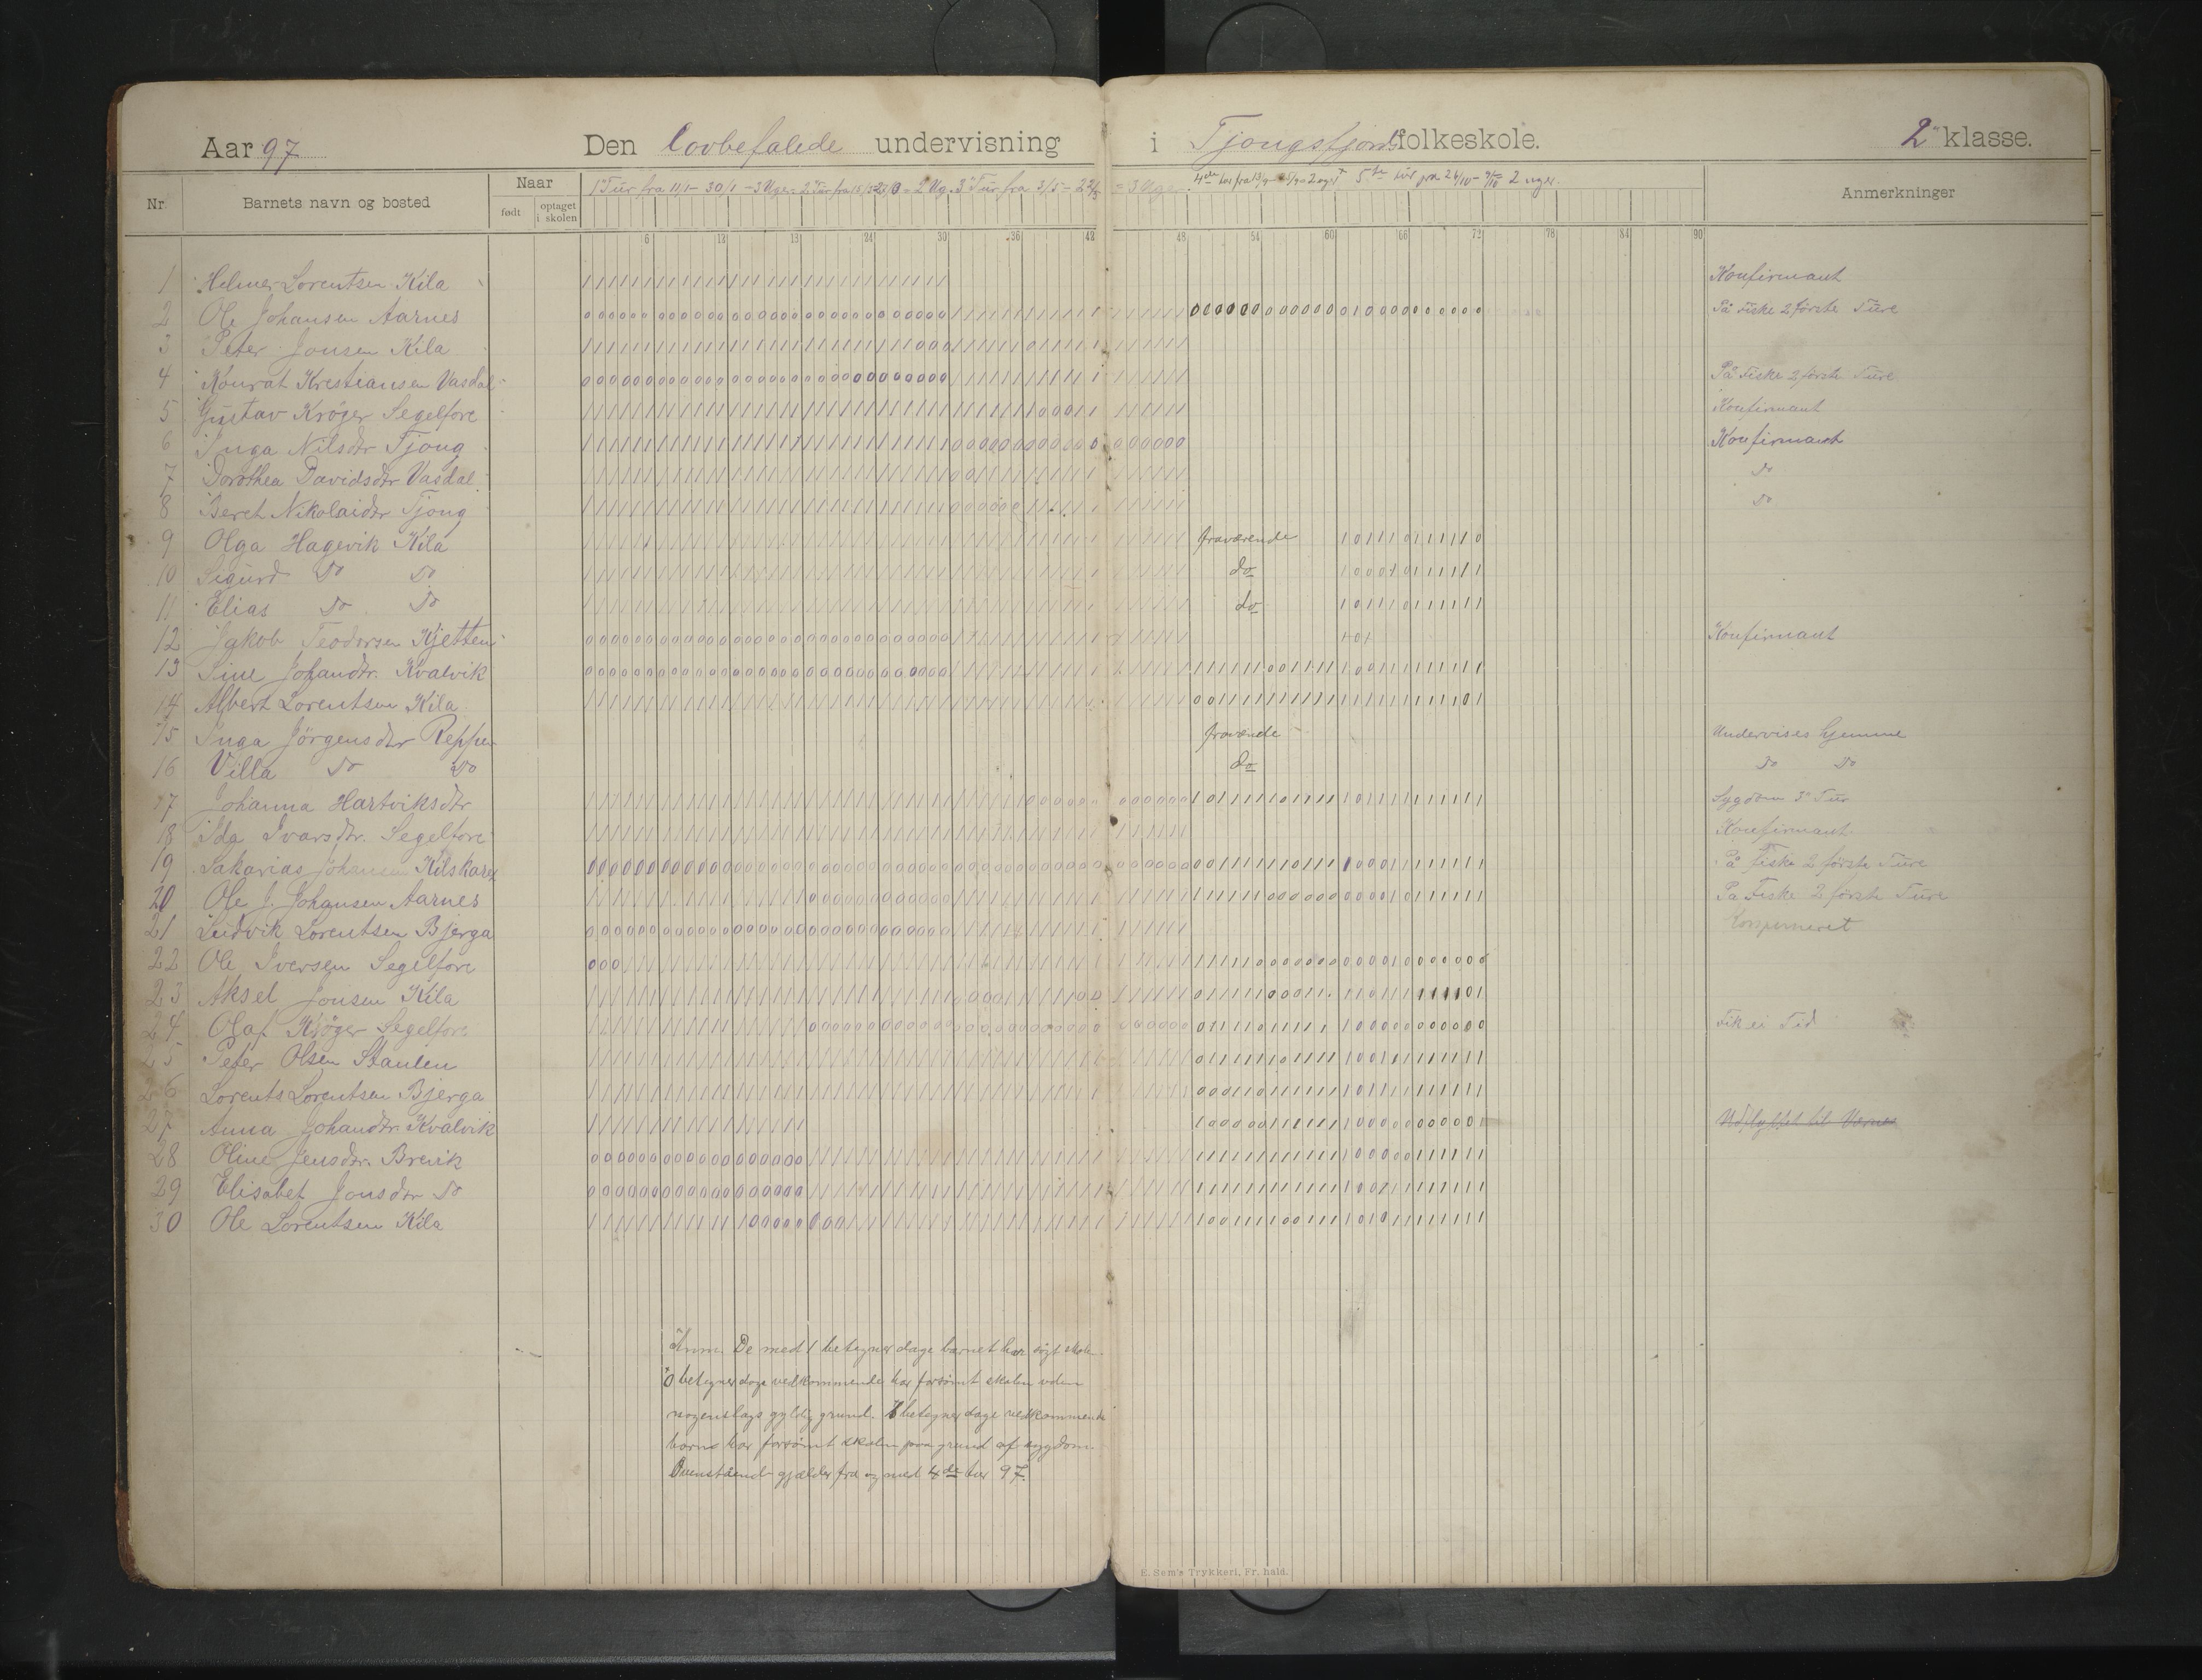 Aar 97 Den lovbefalede undervisning i Tjongsfjord folkeskole. 2den klasse.
Nr. Barnets navn og bosted Naar født optaget i skolen Anmerkninger
1ste Tur fra 11/1 - 30/1 - 3 Uger = 2 Ug. 3 Tur fra 3/5 - = 3 Uger. 4de tur fra 13/9 - 2 uger 5te tur fra 2 uger.
6 12 18 24 30 36 42 48 54 60 66 72 78 84 90
1 Helmer Lorentsen Kila Konfirmant
2 Ole Johansen Aarnes På Fiske 2 første Ture
3 Peter Jonsen Kila
4 Konrat Kristiansen Vasdal På Fiske 2 første Ture
5 Gustav Krøger Segelfore Konfirmant
6 Inga Nilsdtr Tjong Konfirmant
7 Dorothea Davidsdtr Vasdal do
8 Beret Nikolaidtr Tjong do
9 Olga Hagevik Kila fraværende
10 Sigurd do do do
11 Elias do do do
12 Jakob Teodorsen Kjetten Konfirmant
13 Sine Johandtr. Kvalvik
14 Albert Lorentsen Kila
15 Inga Jörgensdtr Reppen fraværende Undervises hjemme
16 Villa do do do do do
17 Johanna Hartviksdtr Sygdom 3 Tur
18 Ida Ivarsdtr. Segelfore Konfirmant
19 Sakarias Johansen Kilskaret På Fiske 2 første Ture
20 Ole J. Johansen Aarnes På Fiske 2 første Ture
21 Ludvik Lorentsen Bjerga
22 Ole Iversen Segelfore
23 Aksel Jonsen Kila
24 Olaf Krøger Segelfore Fik ei Tid
25 Peter Olsen Staulen
26 Lorents Lorentsen Bjerga
27 Anna Johandtr Kvalvik Udflyttet til Værnes
28 Oline Jensdtr. Brevik
29 Elisabet Jonsdtr do
30 Ole Lorentsen Kila
Anm. De med 1 betegner dage barnet har søgt skolen.
0 betegner dage vedkommende har forsømt skolen uden
nogenslags gyldig grund. betegner dage vedkommende
barns har forsømt skolen paa grund af sygdom.
Ovenstående gjælder fra og med 4de tur 97.
E. Sem's Trykkeri, Fr. hald.